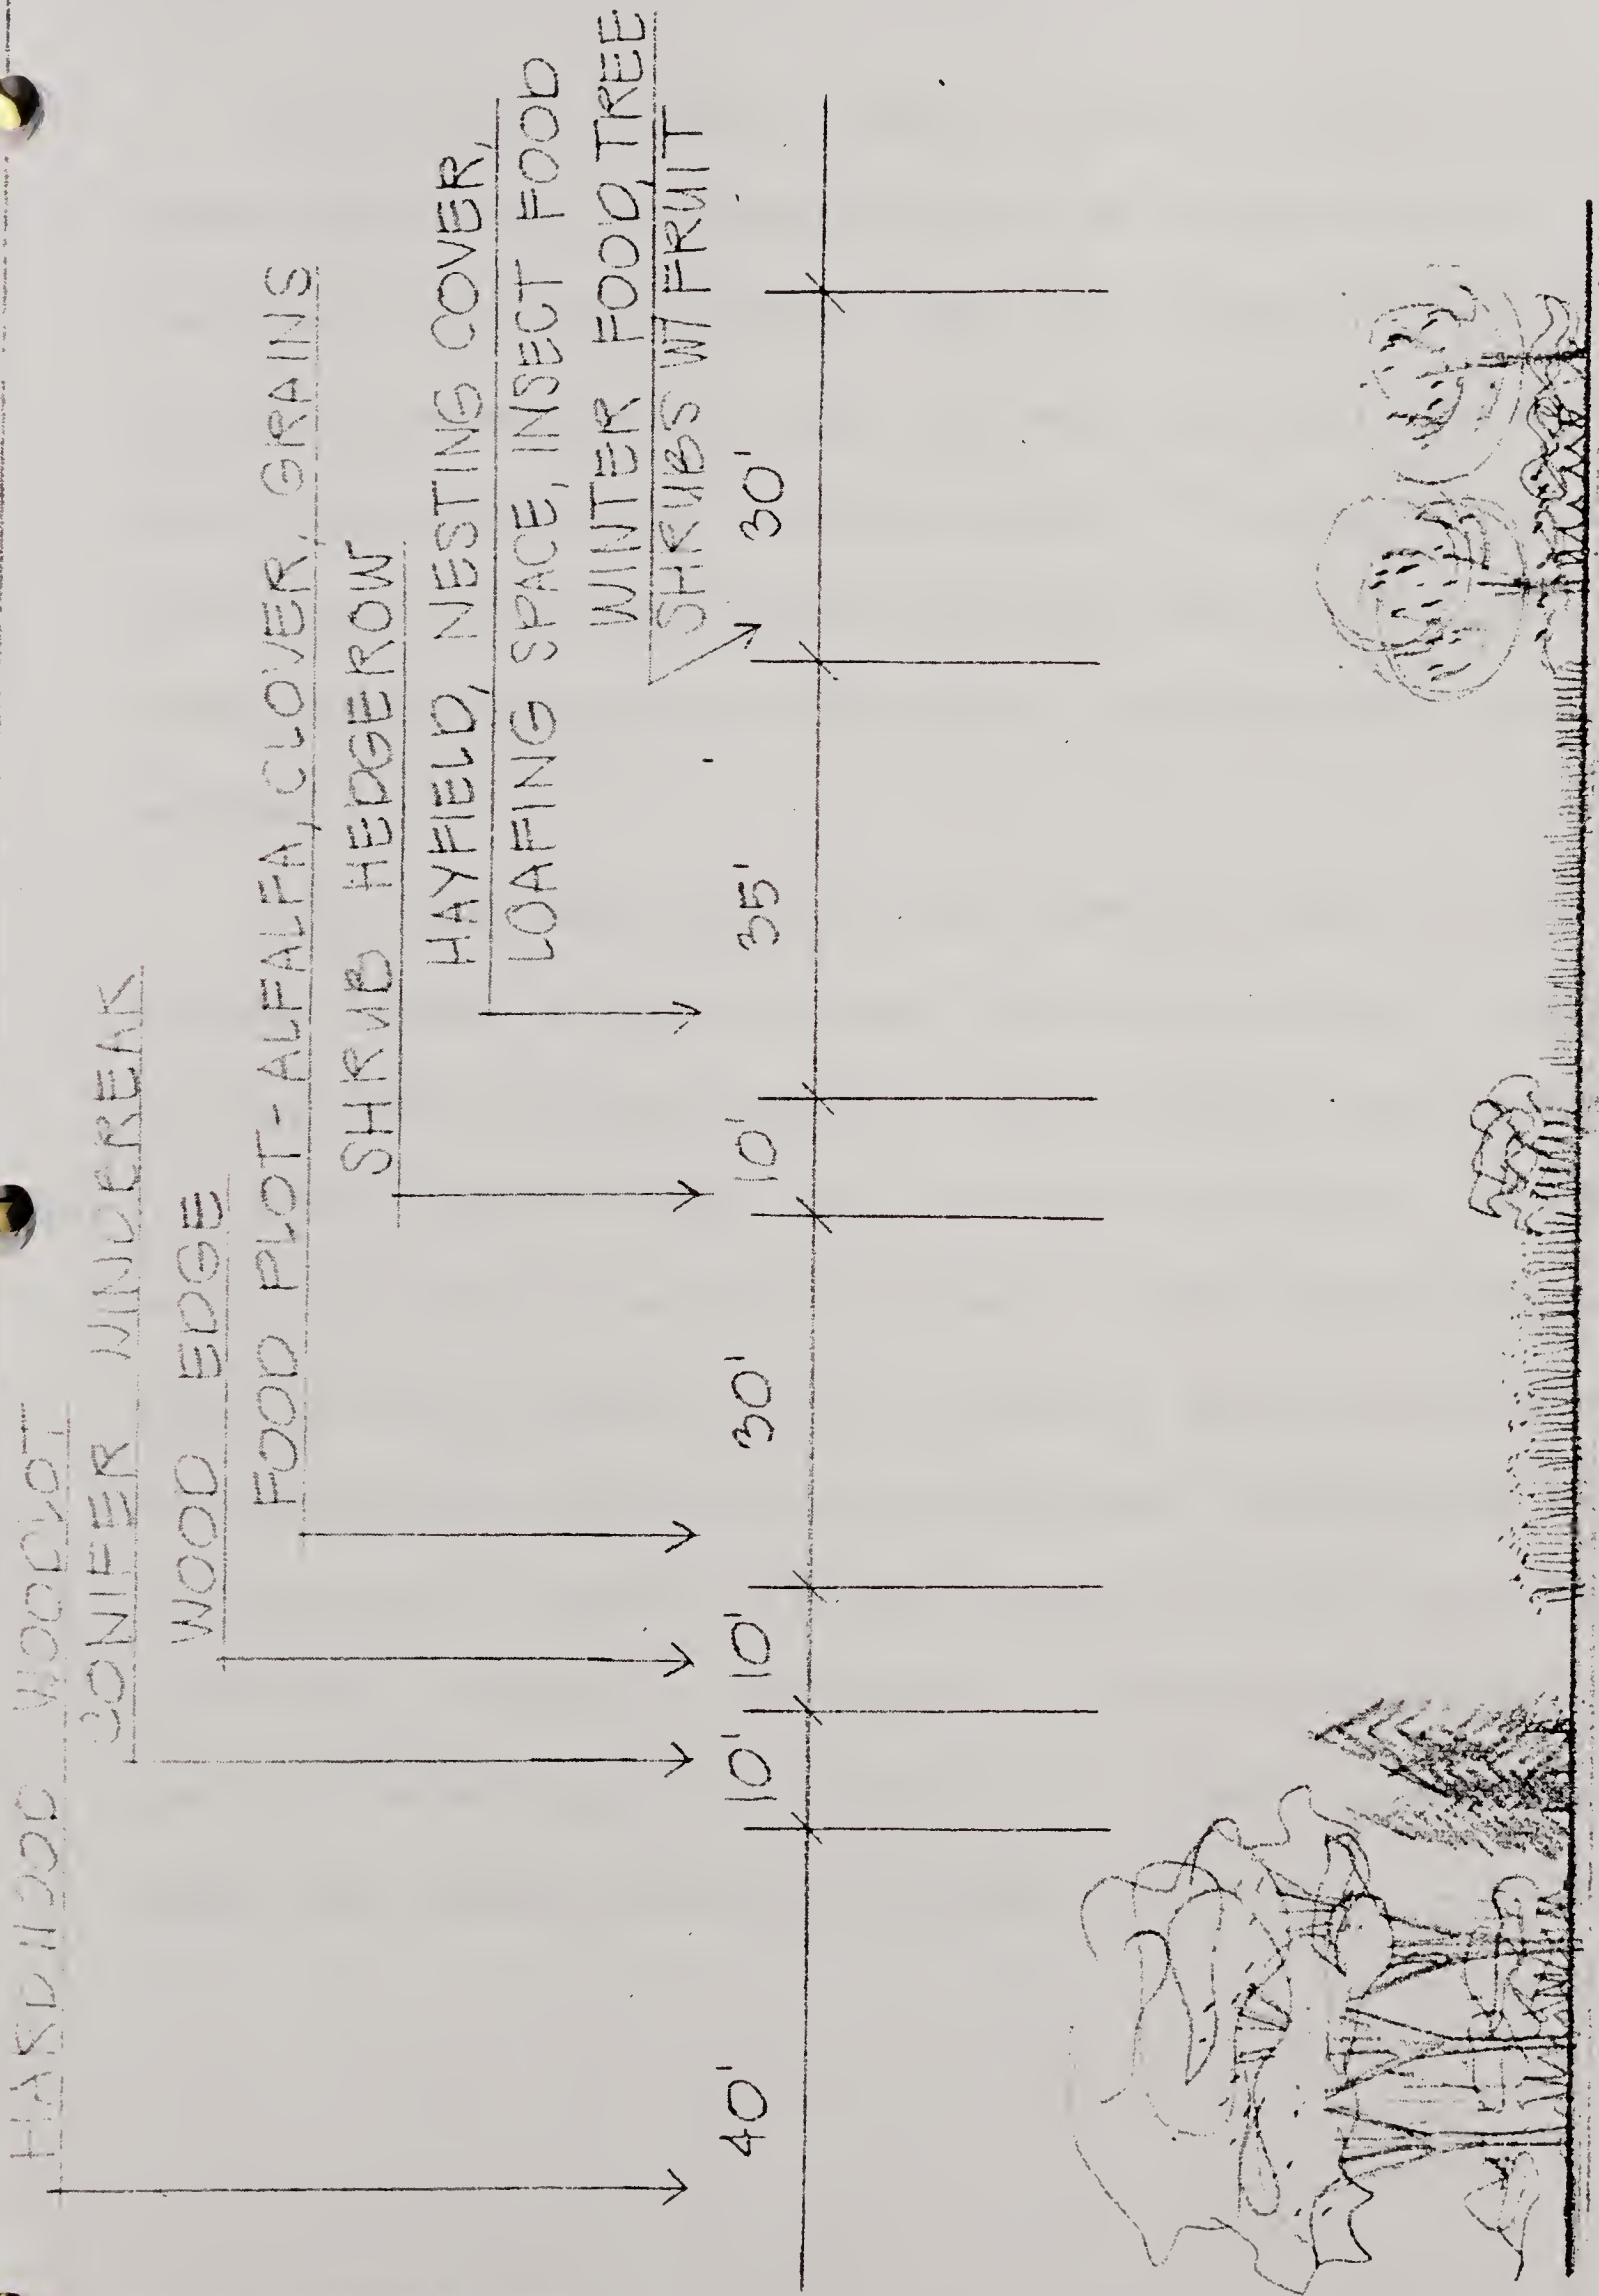 HARDWOOD WOODLOT
CONIFER WINDBREAK
WOOD EDGE
FOOD PLOT-ALFALFA, CLOVER, GRAINS
SHRUB HEDGEROW
HAYFIELD, NESTING COVER,
LOAFING SPACE, INSECT FOOD
WINTER FOOD, TREE
SHRUBS W/ FRUIT
40' 10' 10' 30' 10' 35' 30'